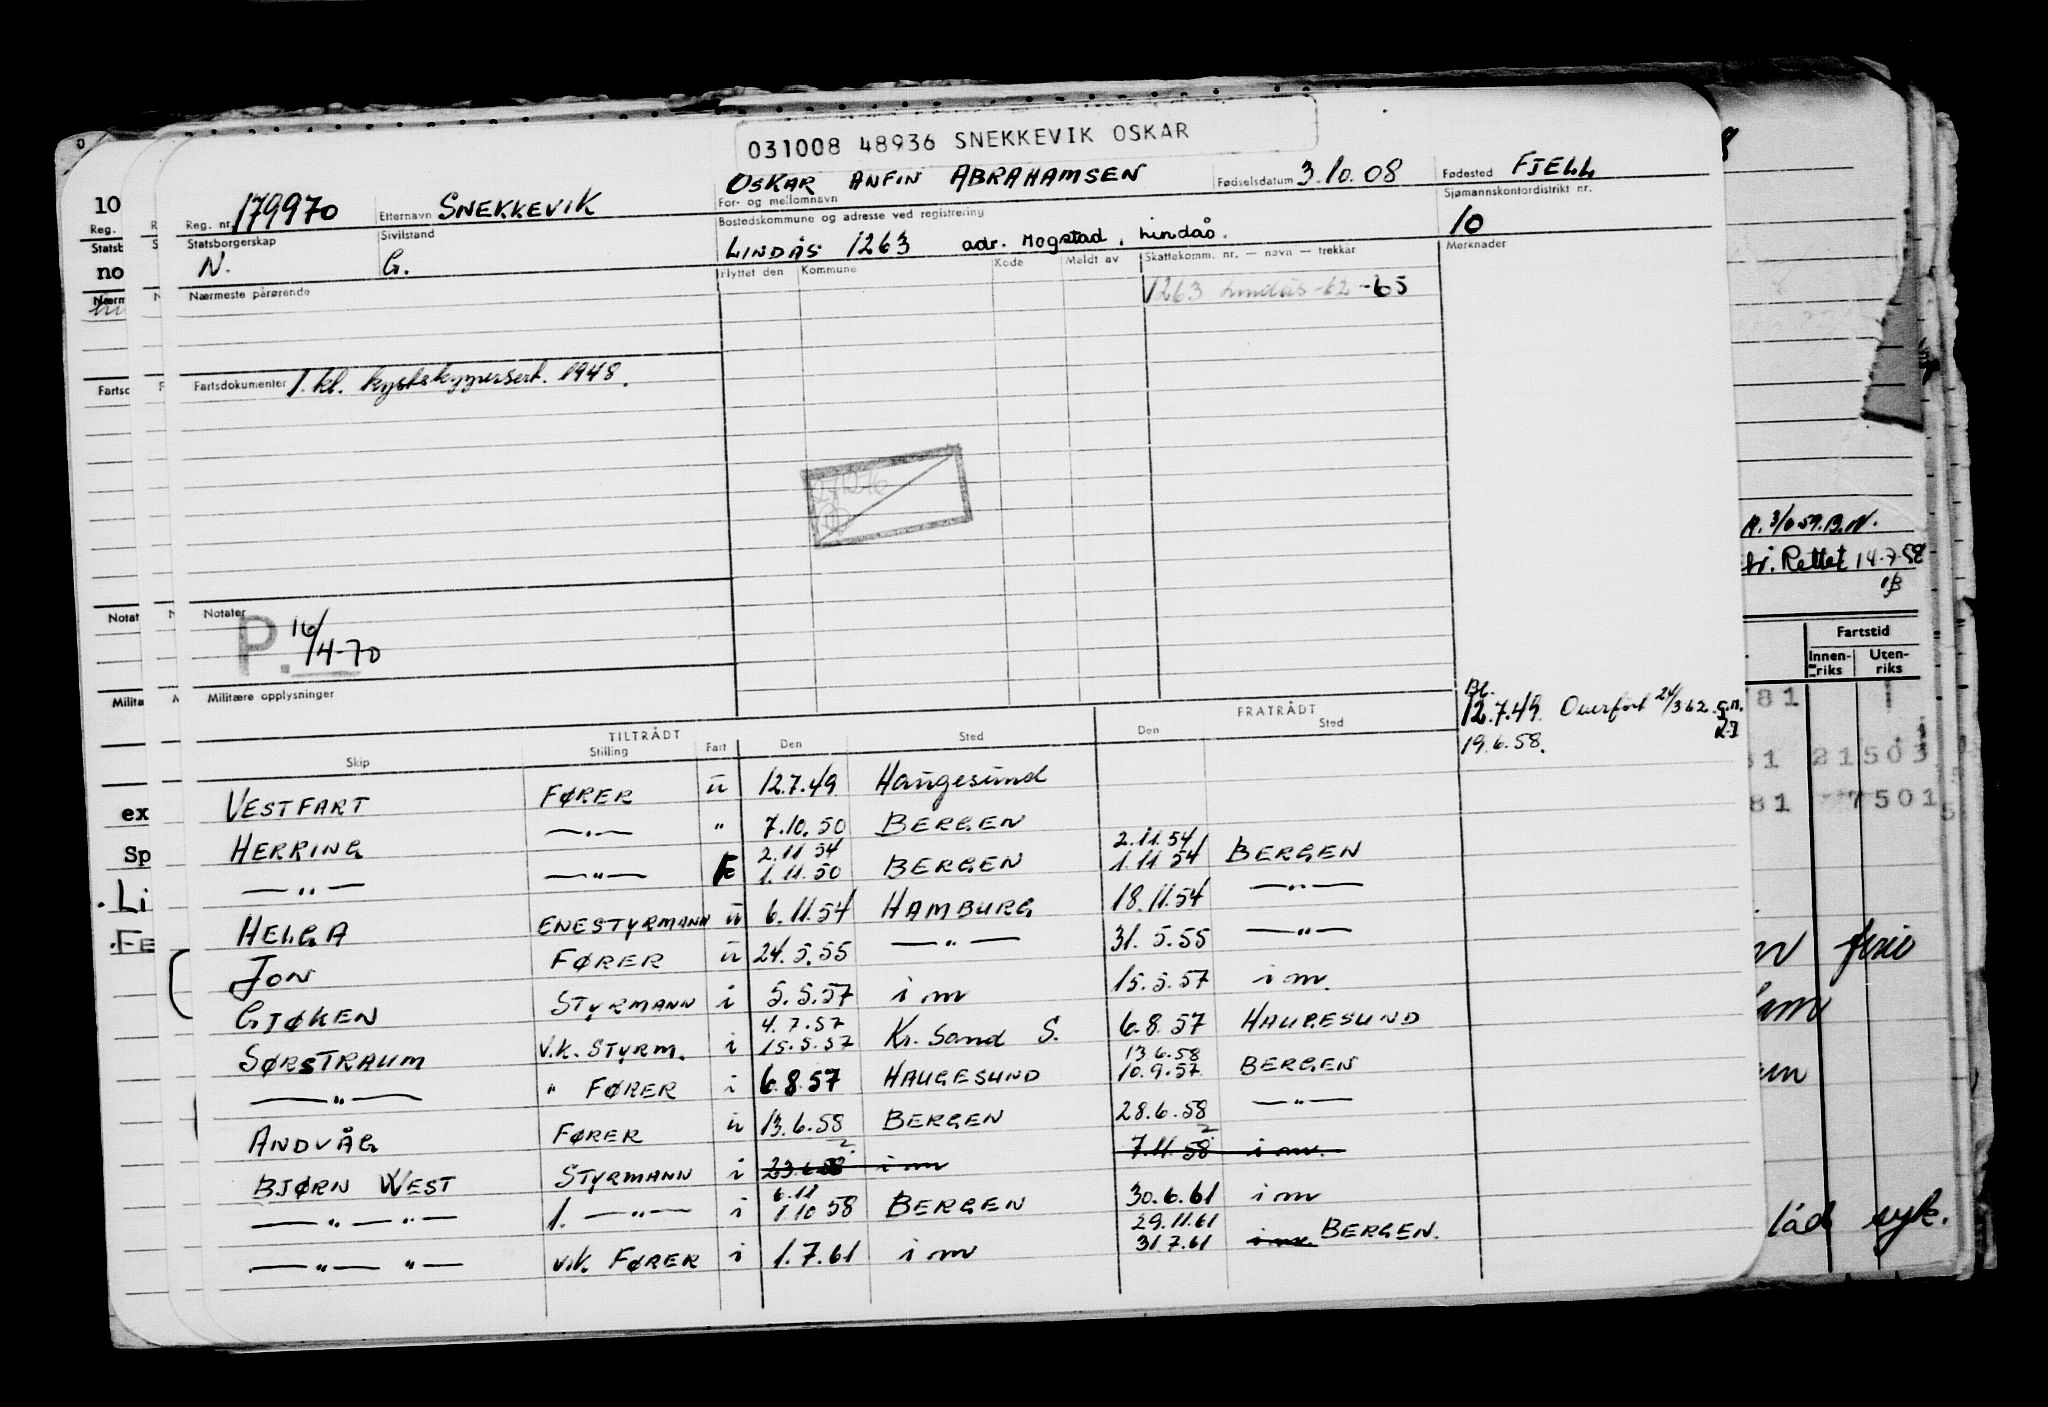 031008 48936 SNEKKEVIK OSKAR
Reg. nr. 179970 Etternavn SNEKKEVIK OSKAR ANFIN ABRAHAMSEN Fødselsdatum 3.10.08 Fødested FJELL
For- og mellomnavn
Statsborgerskap Sivilstand Bostedskommune og adresse ved registrering Sjømannskontordistrikt nr.
N. G. LINDÅS 1263 adr. Mogstad, Lindås. 10
Nærmeste pårørende Flyttet den Kommune Kode Meldt av Skattekomm. nr. — navn — trekkår Merknader
1263 Lindås -62 -65
Fartsdokumenter 1. kl. kystskippersert. 1948.
Notater
P. 16/4-70
Militære opplysninger
12.7.49 Overført 24/3 62 G.N.
19.6.58.
TILTRÅDT FRATRÅDT
Skip Stilling Fart Den Sted Den Sted
VESTFART FØRER u 12.7.49 Haugesund
HERRING —"— " 7.10.50 BERGEN
2.11 54 2.11.54
—"— —"— 1.11.50 BERGEN 1.11 54 BERGEN
HELGA ENESTYRMANN u 6.11.54 HAMBURG 18.11.54 —"—
JON FØRER u 24.5.55 —"— 31.5.55 —"—
GJØKEN STYRMANN i 5.5.57 i m 15.5.57 i m.
4.7.57
SØRSTRAUM V.K. STYRM. i 15.5.57 Kr. Sand S. 6.8.57 HAUGESUND
13.6.58
—"— " FØRER i 6.8.57 HAUGESUND 10.9.57 BERGEN
ANDVÅG FØRER u 13.6.58 BERGEN 28.6.58 —"—
BJØRN WEST STYRMANN i 23.6.58 i m 7.11.58 i m.
6.11
—"—"— 1. —"— i 1 10 58 BERGEN 30.6.61 i m
29.11.61
—"— "— V.K. FØRER i 1.7.61 i m 31.7.61 i m. BERGEN.
10
Reg.
Statsb
no
Nærm
Fartsd
Notat
Milita
ex
Sp
. Li
. FE
R. 3/6 59. B.N.
Rettet 14-7-58
Fartstid
Innen-riks Uten-riks
81
21503
81 7501
syk.